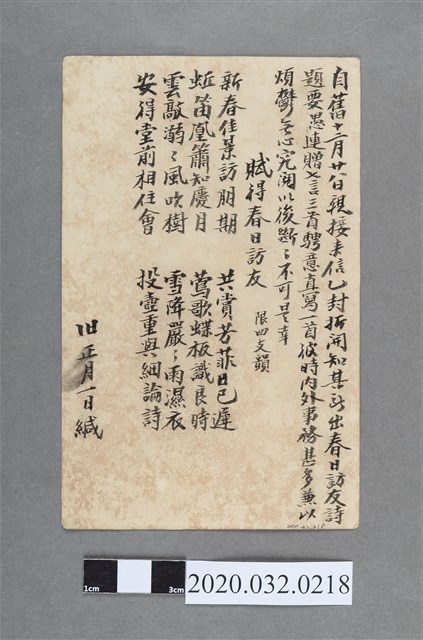 自舊十二月廿八日親接來信乙封拆開知其所出春日訪友詩
題要愚連贈七言三首騁意直寫一首彼時內外事務甚多兼以
煩鬱無心究閱以後斷〻不可是幸
賦得春日訪友 限四支韻
新春佳景訪朋期 共賞芳菲日已遲
蚯笛凰簫知慶月 鶯歌蝶板識良時
雲敲溺〻風吹樹 雪降嚴〻雨濕衣
安得堂前相住會 投壺重與細論詩
旧正月一日緘
1cm 3cm
2020.032.0218